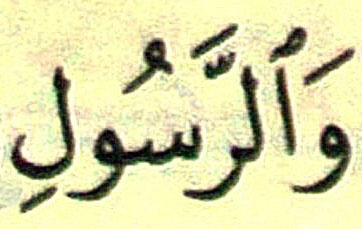 وَٱلرَّسُولِ